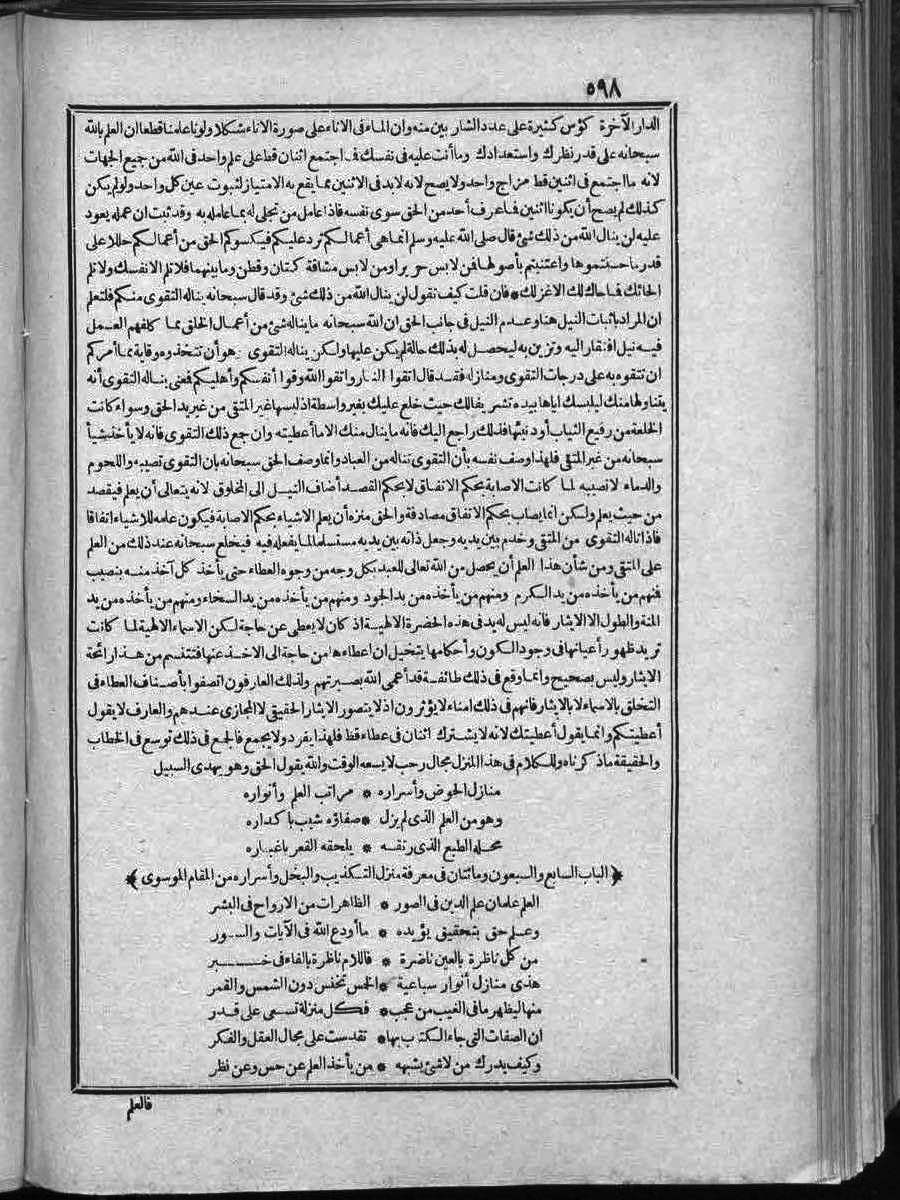 ٥٩٨
الدار الآخرة كؤس كثيرة على عدد الشاربين منه وان الماء فى الاناء على صورة الاناء شكلا ولونا علمنا قطعا ان العلم بالله
سبحانه على قدر نظرك واستعدادك وما أنت عليه فى نفسك فما اجتمع اثنان قط على علم واحد فى الله من جميع الجهات
لانه ما اجتمع فى اثنين قط مزاج واحد ولا يصح لانه لابد فى الاثنين مما يقع به الامتياز لثبوت عين كل واحد ولو لم يكن
كذلك لم يصح أن يكونا اثنين فما عرف أحد من الحق سوى نفسه فاذا عامل من تجلى له بما عامله به وقد ثبت ان عمله يعود
عليه لن ينال الله من ذلك شئ قال صلى الله عليه وسلم انما هى أعمالكم ترد عليكم فيكسوكم الحق من أعمالكم حللا على
قدر ما حسنتموها واعتنيتم بأصولها فمن لابس حريرا ومن لابس مشاقة كتان وقطن وما بينهما فلا تلم الانفسك ولا تلم
الحائك فما حاك لك الاغزلك * فان قلت كيف تقول لن ينال الله من ذلك شئ وقد قال سبحانه يناله التقوى منكم فلتعلم
ان المراد باثبات النيل هنا وعدم النيل فى جانب الحق ان الله سبحانه ما يناله شئ من أعمال الخلق مما كلفهم العمل
فيه نيل افتقار اليه وتزين به ليحصل له بذلك حالة لم يكن عليها ولكن يناله التقوى هو أن تتخذوه وقاية مما أمركم
ان تتقوه به على درجات التقوى ومنازله فقد قال اتقوا النار واتقوا الله وقوا أنفسكم وأهليكم فمعنى يناله التقوى أنه
يتناولها منك ليلبسك اياها بيده تشريفا لك حيث خلع عليك بغير واسطة اذ لبسها غير المتقى من غير يد الحق وسواء كانت
الخلعة من رفيع الثياب أو دنيئها فذلك راجع اليك فانه ما ينال منك الا ما أعطيته وان جمع ذلك التقوى فانه لا يأخذ شيأ
سبحانه من غير المتقى فلهذا وصف نفسه بأن التقوى تناله من العباد وانما وصف الحق سبحانه بان التقوى تصيبه واللحوم
والدماء لا تصيبه لما كانت الاصابة بحكم الاتفاق لا بحكم القصد أضاف النيل الى المخلوق لانه يتعالى أن يعلم فيقصد
من حيث يعلم ولكن انما يصاب بحكم الاتفاق مصادفة والحق منزه أن يعلم الاشياء بحكم الاصابة فيكون علمه للاشياء اتفاقا
فاذا ناله التقوى من المتقى وخدم بين يديه وجعل ذاته بين يديه مستسلما لما يفعله فيه فيخلع سبحانه عند ذلك من العلم
على المتقى ومن شأن هذا العلم أن يحصل من الله تعالى للعبد بكل وجه من وجوه العطاء حتى يأخذ كل آخذ منه بنصيب
فمنهم من يأخذه من يد الكرم ومنهم من يأخذه من يد الجود ومنهم من يأخذه من يد السخاء ومنهم من يأخذه من يد
المنة والطول الا الايثار فانه ليس له يد فى هذه الحضرة الالهية اذ كان لا يعطى عن حاجة لكن الاسماء الالهية لما كانت
تريد ظهور أعيانها فى وجود الكون وأحكامها يتخيل ان اعطاءها من حاجة الى الاخذ عنها فتتنسم من هذا رائحة
الايثار وليس بصحيح وانما وقع فى ذلك طائفة قد أعمى الله بصيرتهم ولذلك العارفون اتصفوا بأصناف العطاء فى
التخلق بالاسماء لا بالايثار فانهم فى ذلك امناء لا يؤثرون اذ لا يتصور الايثار الحقيقى لا المجازى عندهم والعارف لا يقول
أعطيتكم وانما يقول أعطيتك لانه لا يشترك اثنان فى عطاء قط فلهذا يفرد ولا يجمع فالجمع فى ذلك توسع فى الخطاب
والحقيقة ماذكرناه وللكلام فى هذا المنزل مجال رحب لا يسعه الوقت والله يقول الحق وهو يهدى السبيل
منازل الحوض وأسراره * مراتب العلم وأنواره
وهو من العلم الذى لم يزل * صفاؤه شيب باكداره
محله الطبع الذى رنقه * يلحقه القعر باغياره
﴿الباب السابع والسبعون ومائتان فى معرفة منزل التكذيب والبخل وأسراره من المقام الموسوى﴾
العلم علمان علم الدين فى الصور * الظاهرات من الارواح فى البشر
وعلم حق بتحقيق يؤيده * ما أودع الله فى الآيات والسور
من كل ناظرة بالعين ناضرة * فاللام ناظرة بالفاء فى خبر
هذى منازل أنوار سباعية * الخمس تخنس دون الشمس والقمر
منها ليظهر ما فى الغيب من عجب * فكل منزلة تسمى على قدر
ان الصفات التى جاء الكتب بها * تقدست على مجال العقل والفكر
وكيف يدرك من لاشئ يشبهه * من يأخذ العلم عن حس وعن نظر
فالعلم